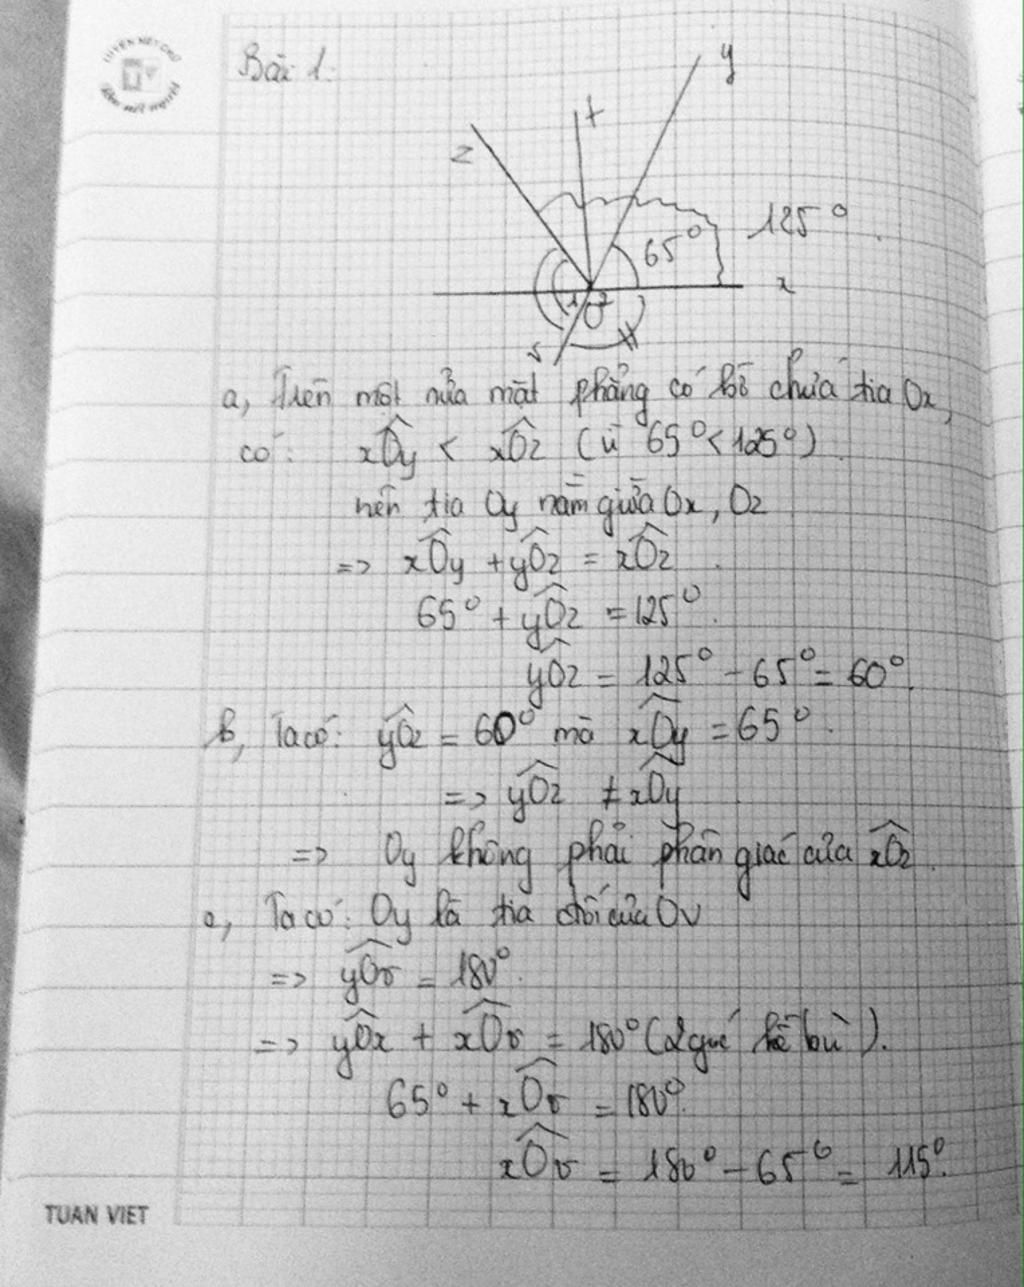 Bài 1:
y
t
z
125°
65°
x
1
2
O
v
a, Trên một nửa mặt phẳng có bờ chứa tia Ox,
có: xÔy < xÔz (vì 65° < 125°)
nên tia Oy nằm giữa Ox, Oz
=> xÔy + yÔz = xÔz.
65° + yÔz = 125°.
yÔz = 125° - 65° = 60°.
b, Ta có: yÔz = 60° mà xÔy = 65°.
=> yÔz ≠ xÔy
=> Oy không phải phân giác của xÔz.
c, Ta có: Oy là tia đối của Ov
=> yÔv = 180°.
=> yÔx + xÔv = 180° (2 góc kề bù).
65° + xÔv = 180°.
xÔv = 180° - 65° = 115°.
TUAN VIET